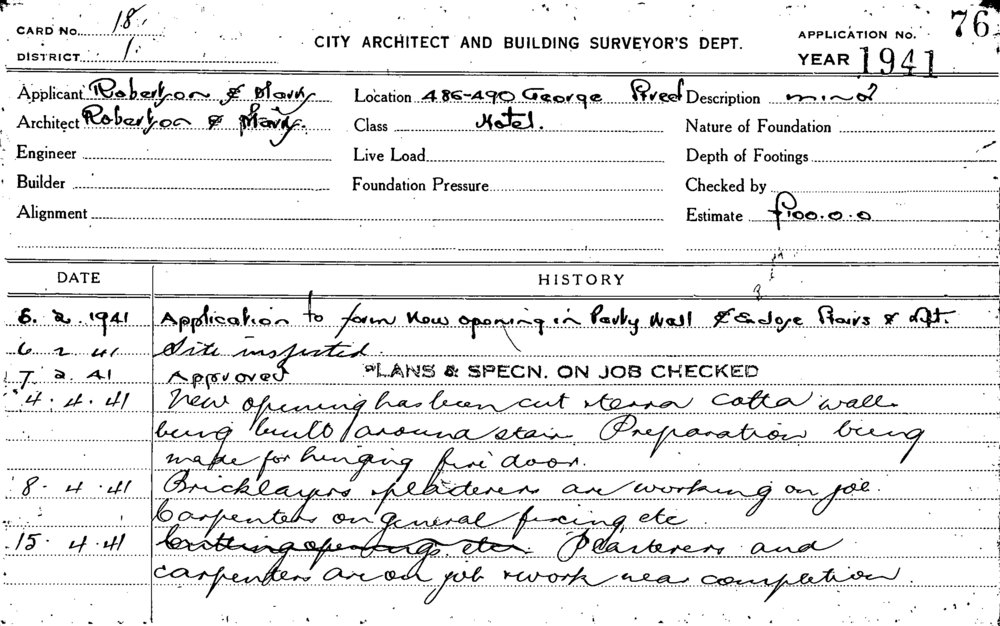 CARD No. 18.
DISTRICT 1.
CITY ARCHITECT AND BUILDING SURVEYOR'S DEPT.
APPLICATION NO. 76
YEAR 1941
Applicant Robertson & Marks Location 486-490 George Street Description minor
Architect Robertson & Marks. Class Hotel. Nature of Foundation
Engineer Live Load Depth of Footings
Builder Foundation Pressure Checked by
Alignment Estimate £100.0.0
DATE HISTORY
6. 2. 1941 Application to form New opening in Party Wall & Enclose Stairs & Lift.
6 2 41 Site inspected.
7. 2. 41 Approved PLANS & SPECN. ON JOB CHECKED
4. 4. 41 New opening has been cut & terra cotta walls
being built around stair. Preparation being
made for hinging fire door.
8. 4. 41 Bricklayers & plasterers are working on job.
Carpenters on general fixing etc
15. 4. 41 Cutting openings etc. Plasterers and
carpenters are on job & work near completion.